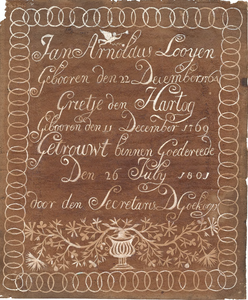 Jan Arnoldus Looyen
Gebooren den 22 December
Grietje den Hartog
Gebooren den 11 December 1769
Getrouwt binnen Goedereede
Den 26 July 1801
door den Secretaris